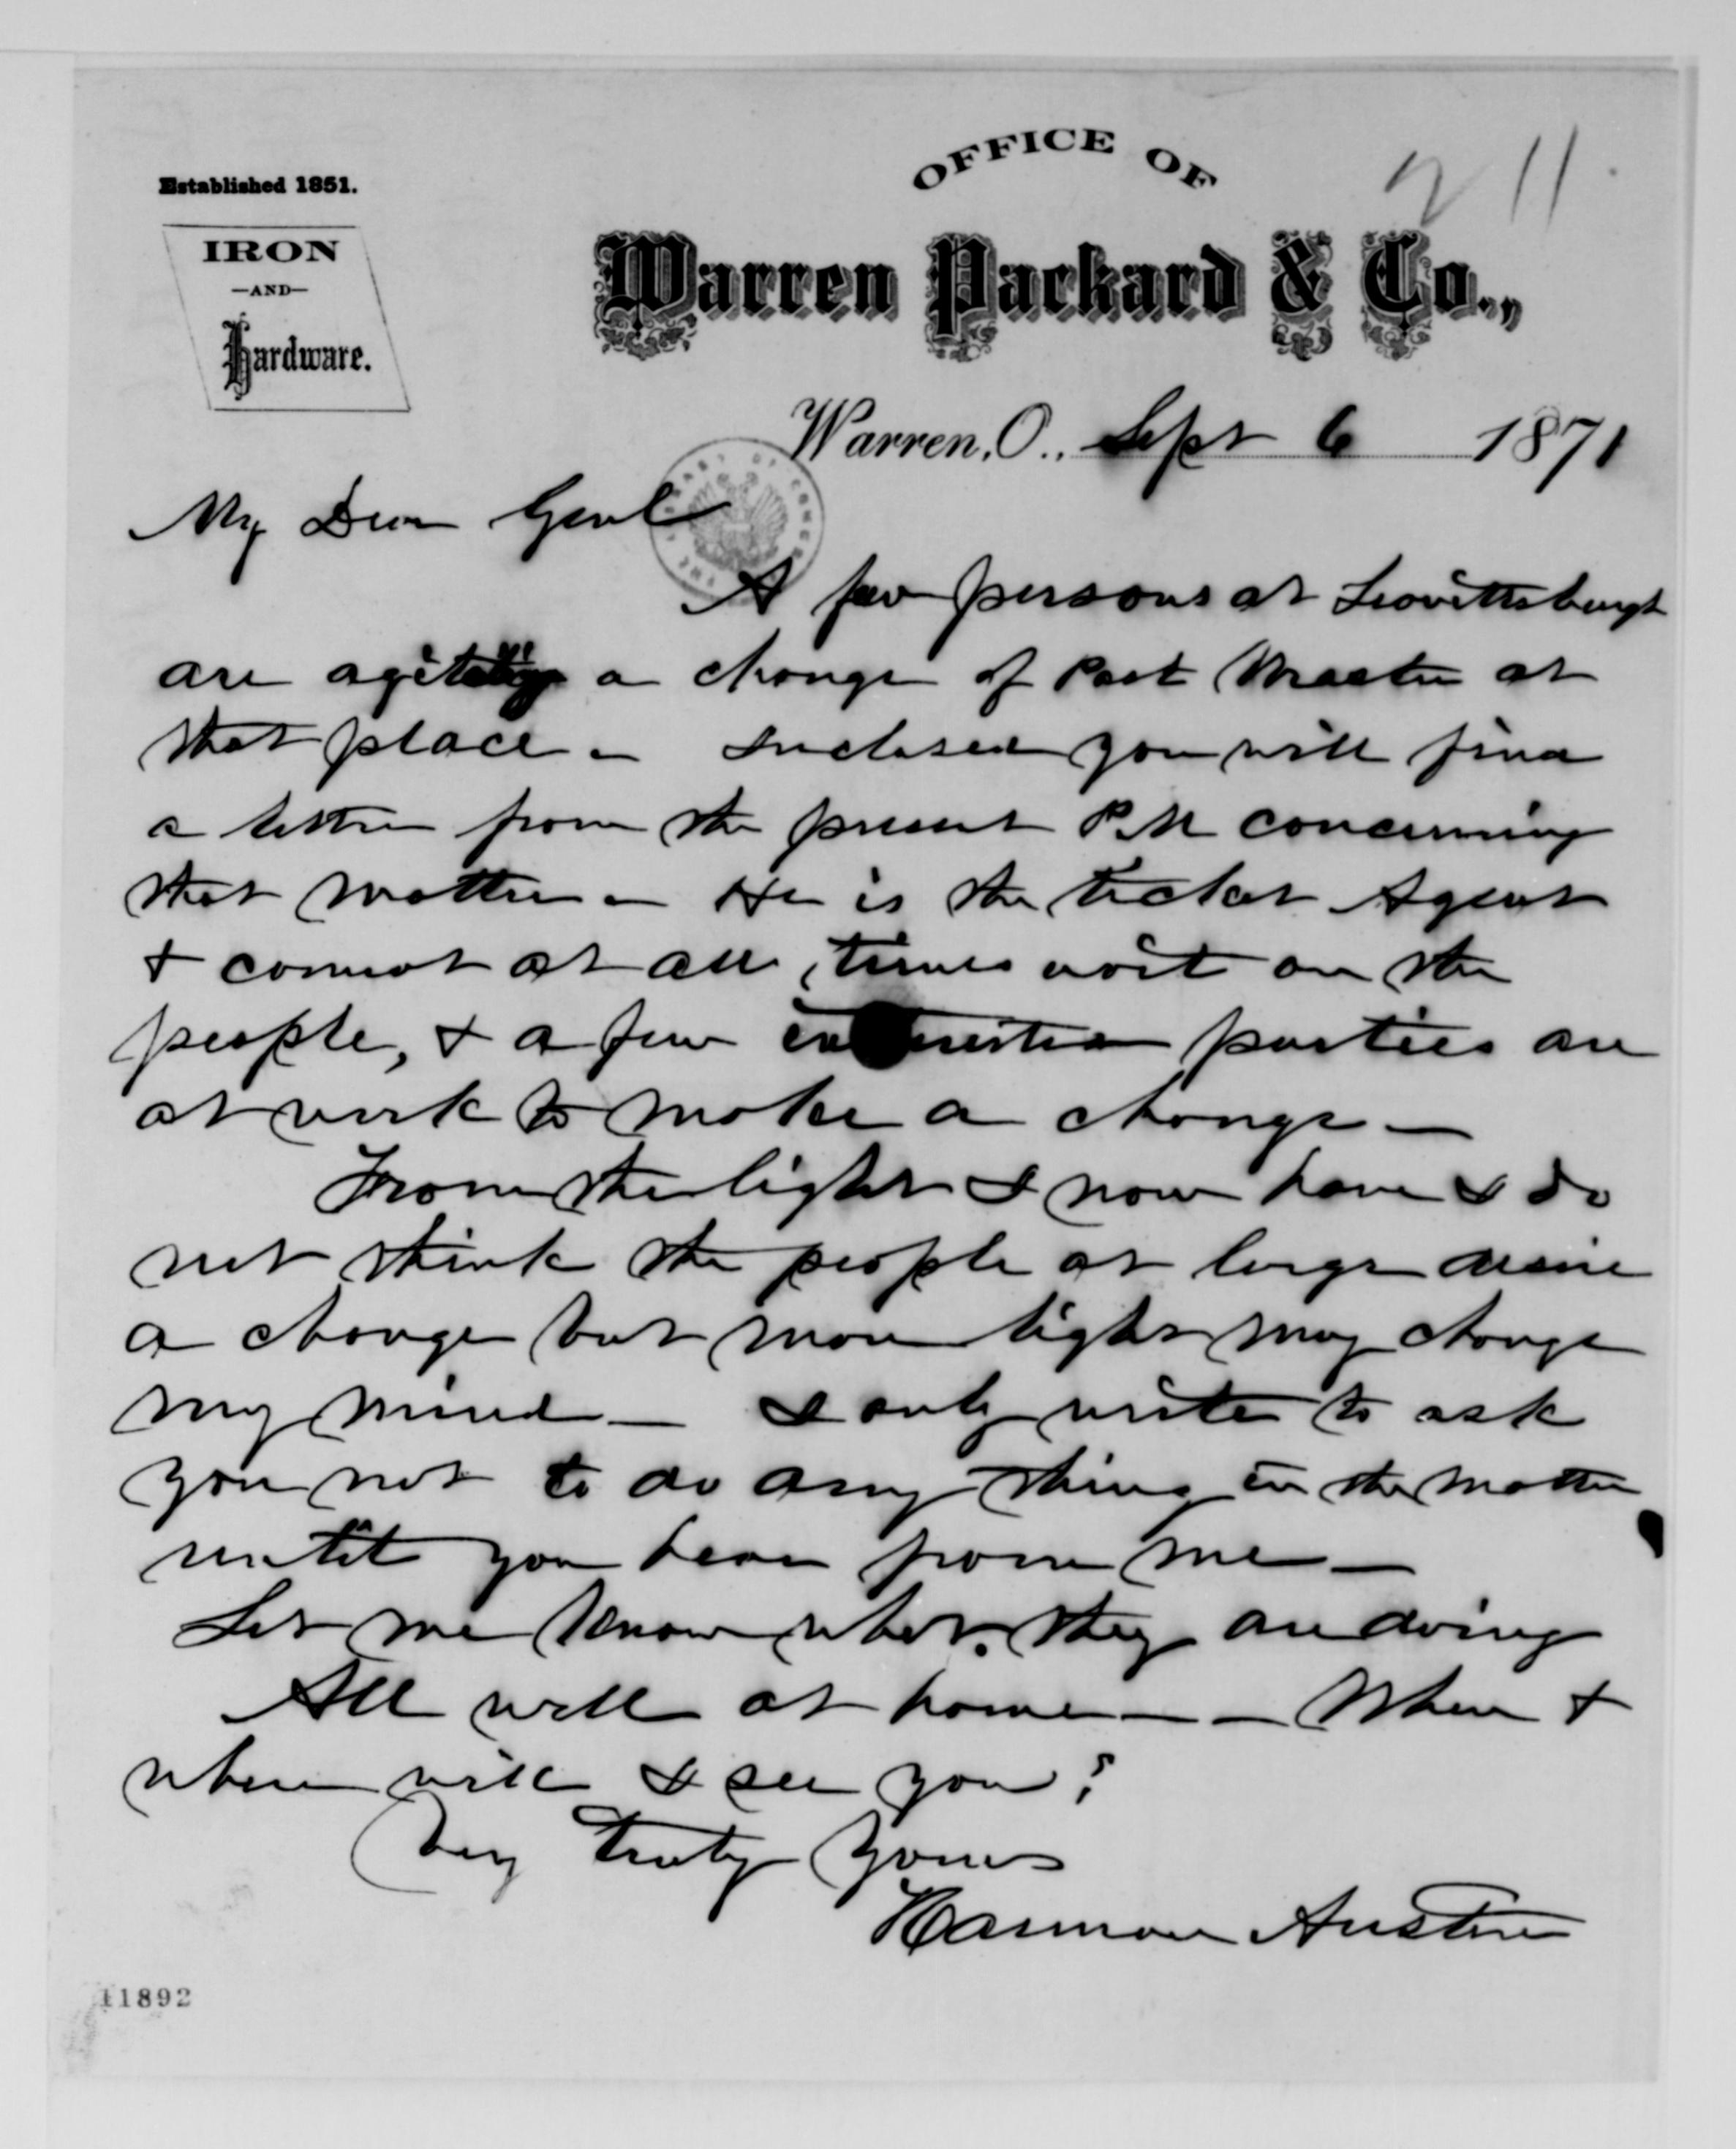 OFFICE OF
211
Established 1851.
IRON
—AND—
Hardware.
Warren Packard & Co.,,
Warren, O., Sept 6 1871
My Dear Genl
A few persons at Leavittsburgh
are agitating a change of Post Master at
that place – Inclosed you will find
a letter from the present P.M concerning
that matter – He is the ticket Agent
& cannot at all times wait on the
people, & a few parties are
at work to make a change –
From the light I now have I do
not think the people at large desire
a change but more light may change
my mind – I only write to ask
you not to do any thing in the matter
until you hear from me –
Let me know what they are doing
All well at home – – When &
where will I see you?
Very truly Yours
Harmon Austin
11892